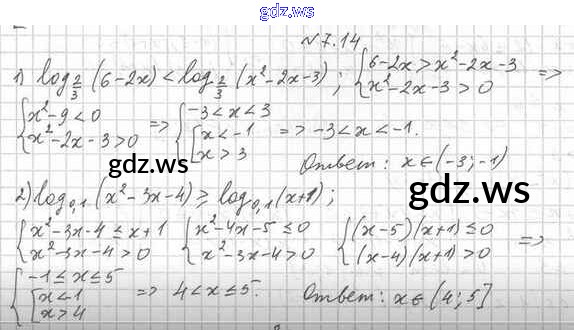 gdz.ws
№7.14
1) log_{2/3} (6-2x) < log_{2/3} (x²-2x-3) ; { 6-2x > x²-2x-3 ; x²-2x-3 > 0 =>
{ x²-9<0 ; x²-2x-3>0 => { -3<x<3 ; [ x<-1 ; x>3 => -3<x<-1.
Ответ: x∈(-3;-1)
gdz.ws
gdz.ws
2) log_{0,1} (x²-3x-4) ≥ log_{0,1} (x+1) ;
{ x²-3x-4 ≤ x+1 ; x²-3x-4>0 { x²-4x-5 ≤ 0 ; x²-3x-4>0 { (x-5)(x+1) ≤ 0 ; (x-4)(x+1) > 0 =>
{ -1≤x≤5 ; [ x<-1 ; x>4 => 4<x≤5. Ответ: x∈(4;5]
gdz.ws